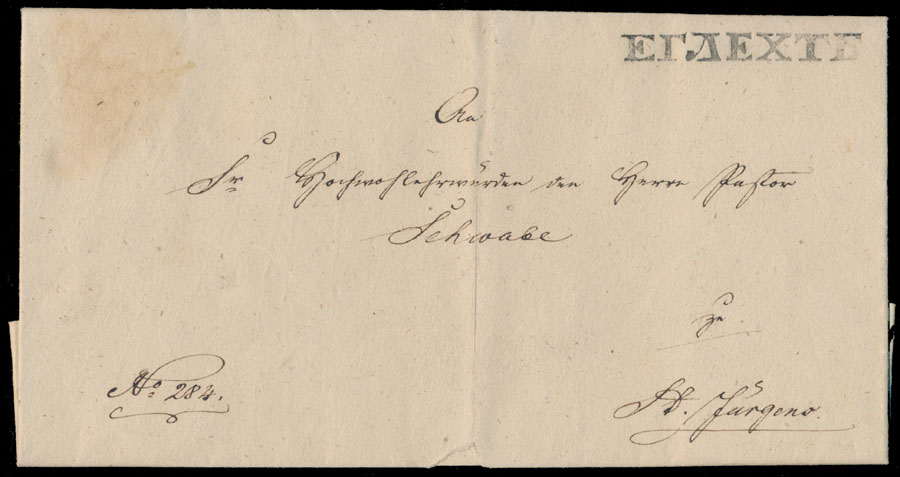 ЕГЛЕХТЕ
An
Sr. Hochwohlehrwürden den Herrn Pastor
Schwabe
zu
No. 284.
St. Jürgens.